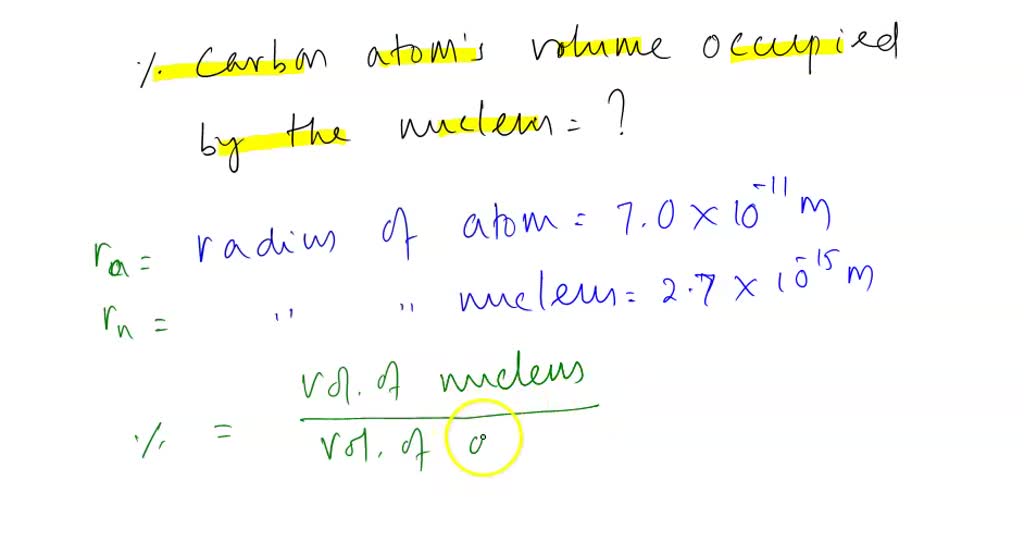 % carbon atom's volume occupied
by the nucleus = ?
ra = radius of atom = 7.0 × 10⁻¹¹ m
rn = " " nucleus = 2.7 × 10⁻¹⁵ m
vol. of nucleus
% =
vol. of a